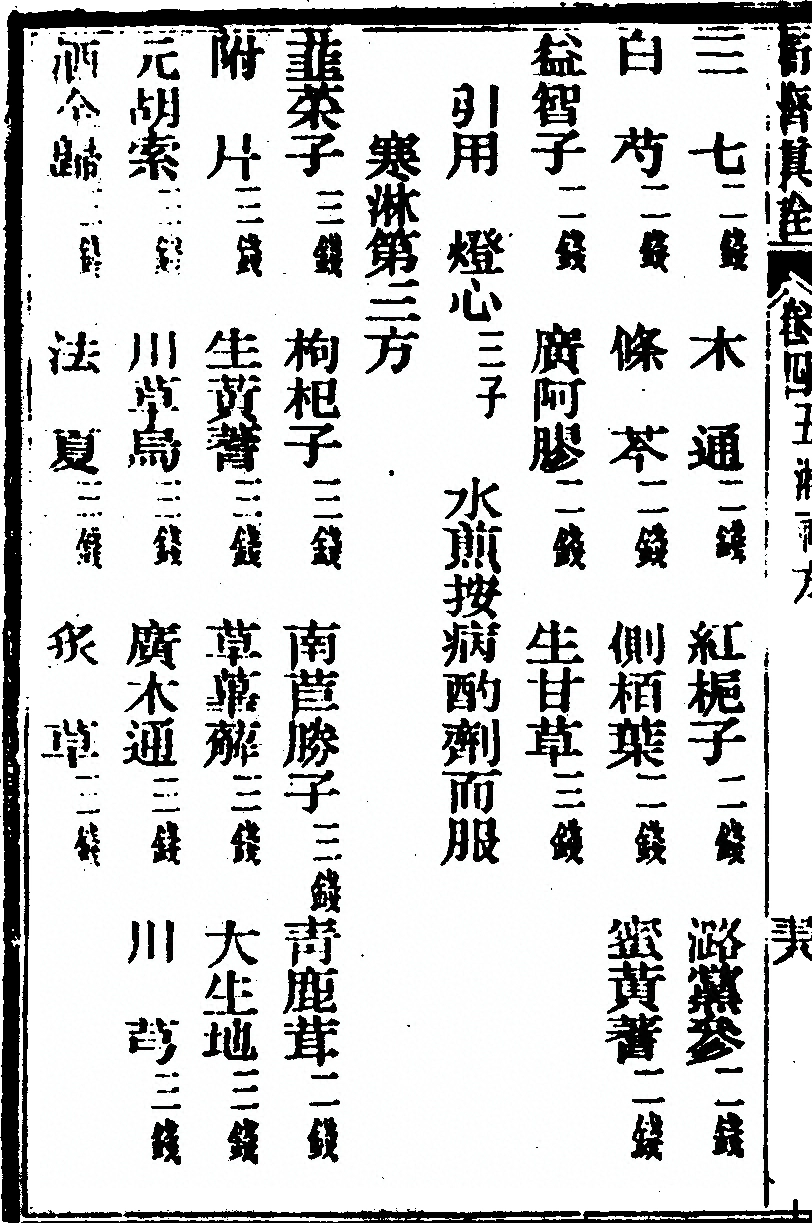 卷四 五淋 兩方
三七二錢 木通二錢 紅梔子二錢 潞黨參二錢
白芍二錢 條芩二錢 側栢葉二錢 蜜黃蓍二錢
益智子二錢 廣阿膠二錢 生甘草三錢
引用 燈心三子 水煎按病酌劑而服
寒淋第三方
韮菜子三錢 枸杞子三錢 南苣勝子三錢 青鹿茸二錢
附片三錢 生黃蓍三錢 草萆薢三錢 大生地三錢
元胡索三錢 川草烏三錢 廣木通三錢 川芎三錢
酒全歸二錢 法夏三錢 炙草二錢